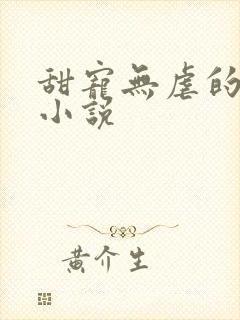 甜寵無虐的
小說
黃介生